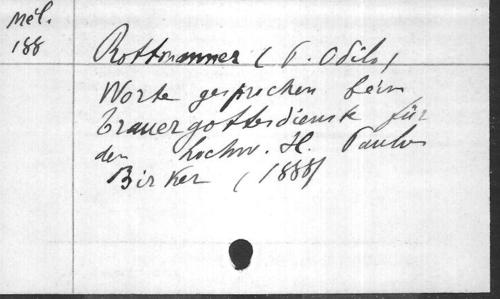 Mél.
188
Rottmanner (P. Odilo)
Worte gesprochen beim
Trauergottesdienste für
den hochw. H. Paulus
Birker (1888)